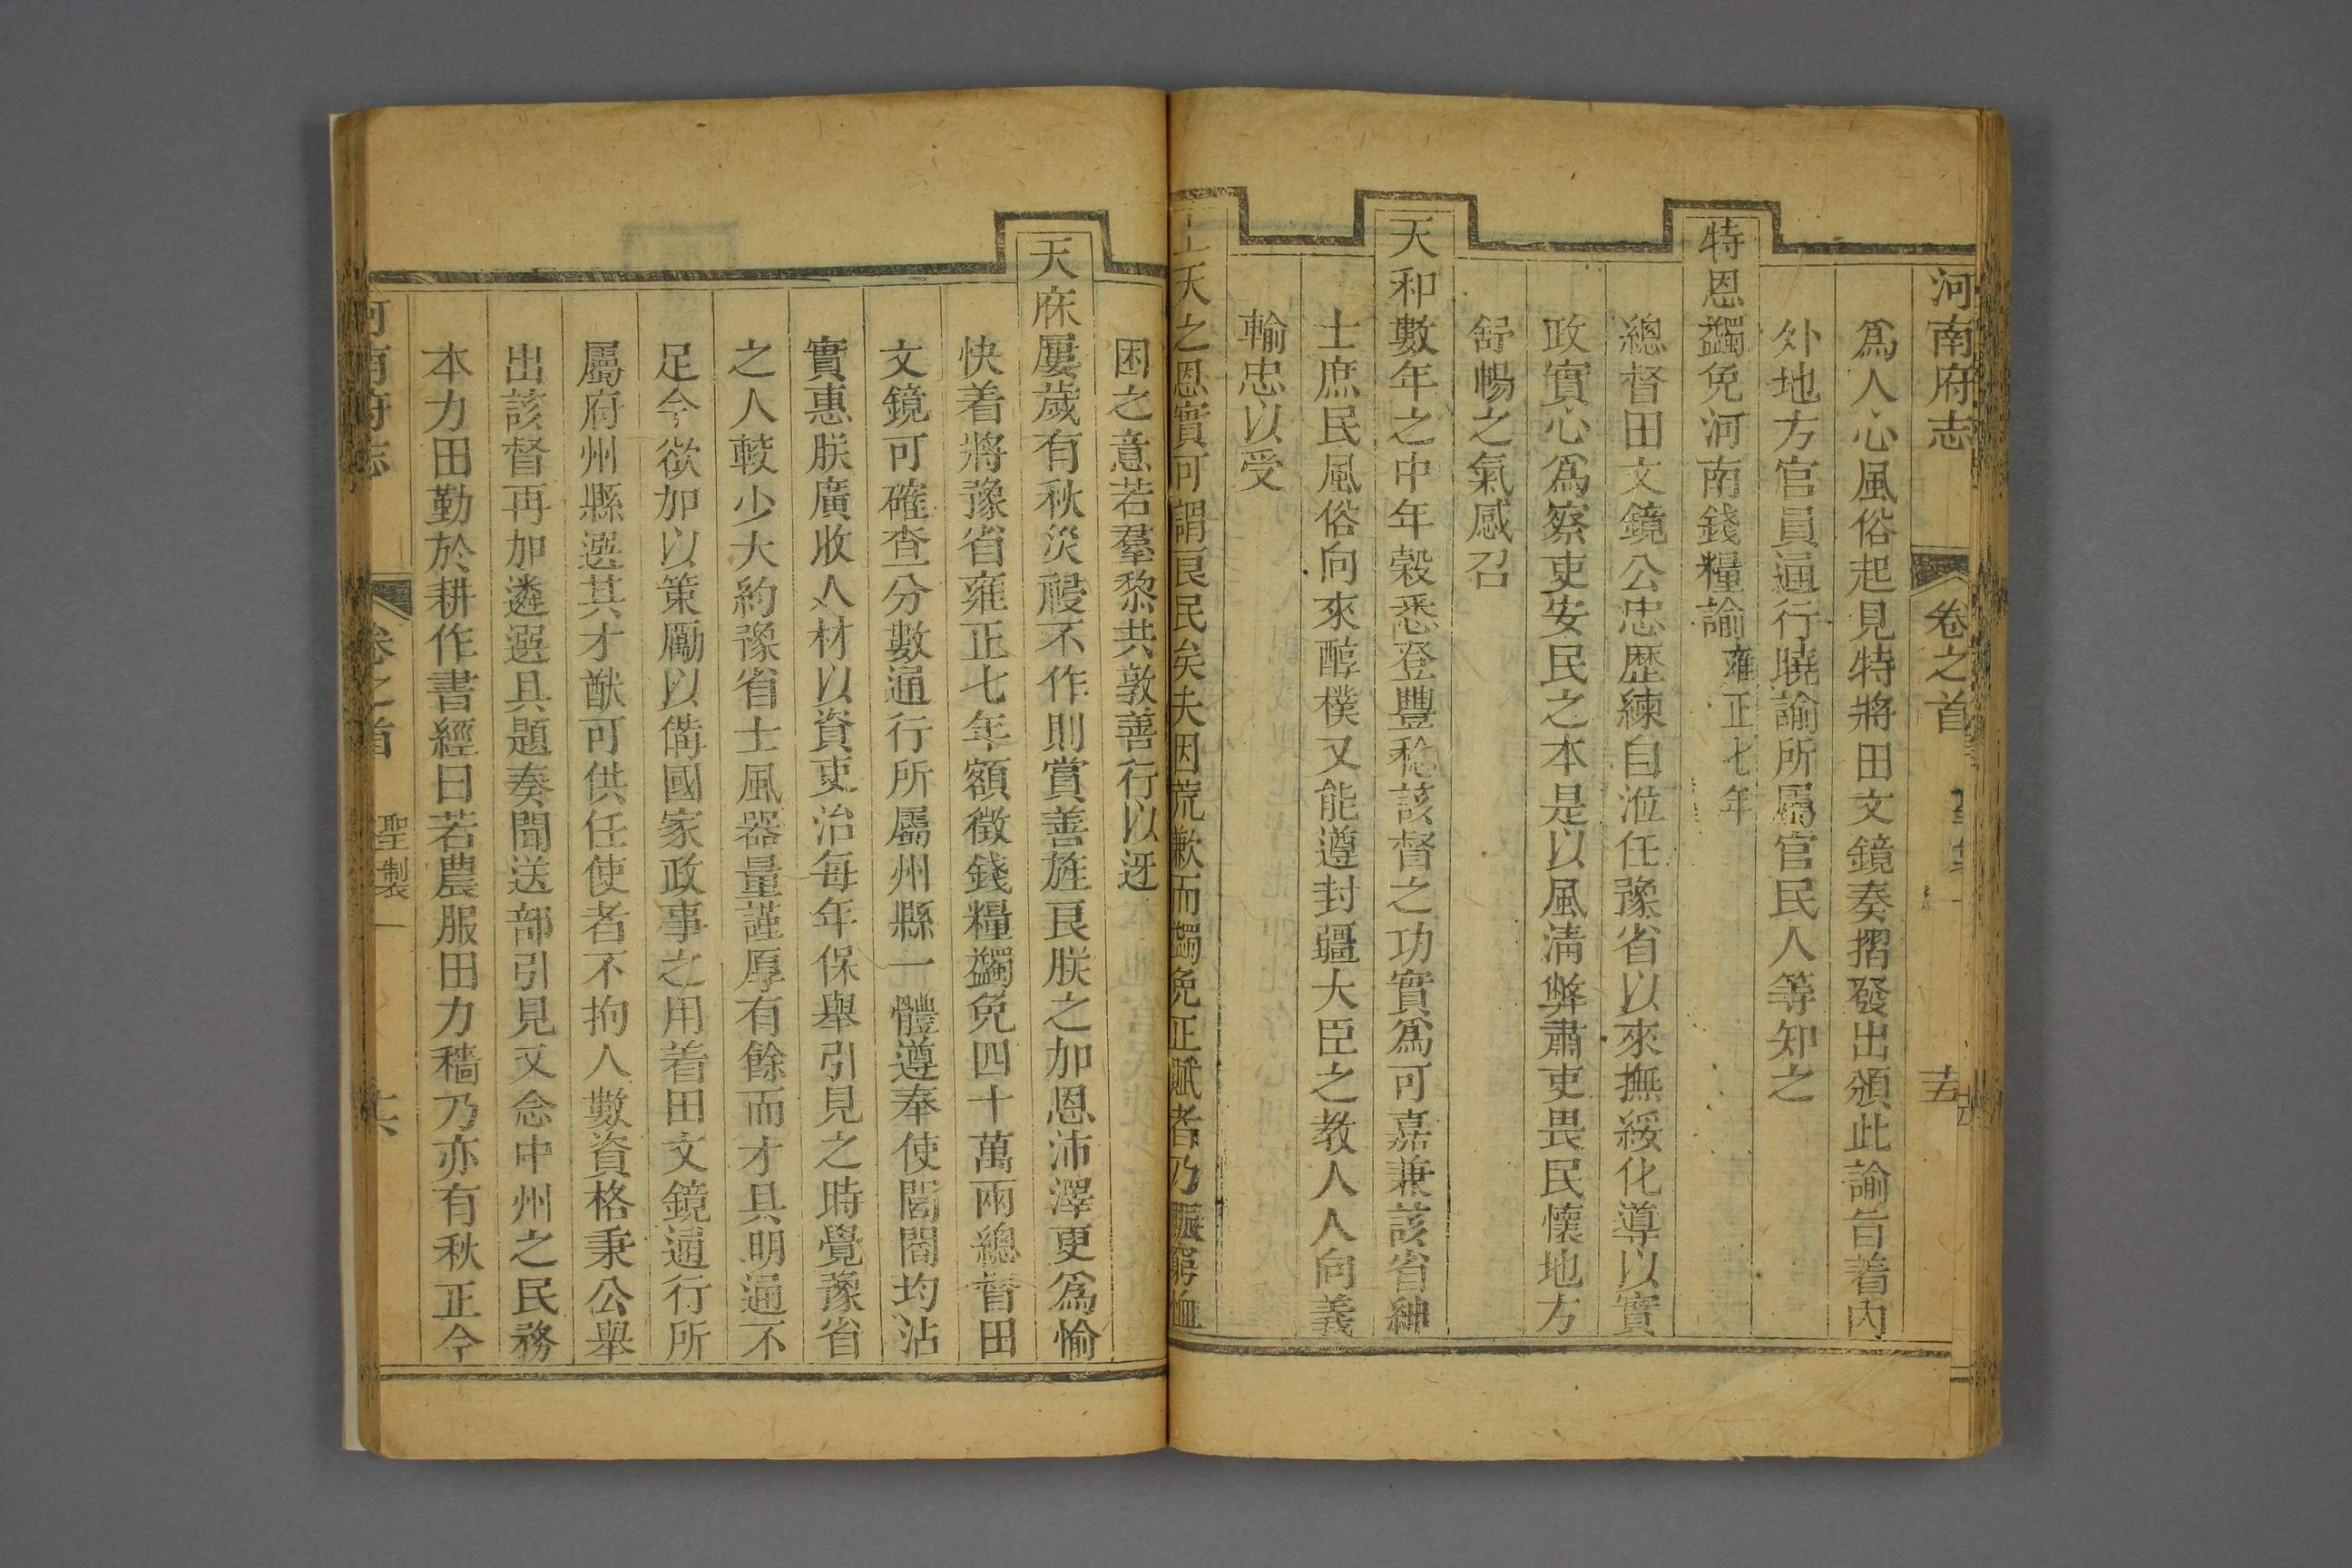 河南府志 卷之首 十五
爲人心風俗起見特將田文鏡奏摺發出頒此諭旨着內
外地方官員通行曉諭所屬官民人等知之
特恩蠲免河南錢糧諭雍正七年
總督田文鏡公忠歴練自涖任豫省以來撫綏化導以實
政實心爲察吏安民之本是以風淸弊肅吏畏民懷地方
舒暢之氣感召
天和數年之中年穀悉登豐稔該督之功實爲可嘉兼該省紳
士庶民風俗向來醇樸又能遵封疆大臣之教人人向義
輸忠以受
上天之恩實可謂良民矣夫因荒歉而蠲免正賦者乃賑窮恤
困之意若羣黎共敦善行以迓
天庥屢歲有秋災祲不作則賞善旌良朕之加恩沛澤更爲愉
快着將豫省雍正七年額徵錢糧蠲免四十萬兩總督田
文鏡可確查分數通行所屬州縣一體遵奉使閭閻均沾
實惠朕廣收人材以資吏治每年保舉引見之時覺豫省
之人較少大約豫省士風器量謹厚有餘而才具明通不
足今欲加以策勵以備國家政事之用着田文鏡通行所
屬府州縣選其才猷可供任使者不拘人數資格秉公舉
出該督再加遴選具題奏聞送部引見又念中州之民務
本力田勤於耕作書經曰若農服田力穡乃亦有秋正今
河南府志 卷之首 聖製一 十六